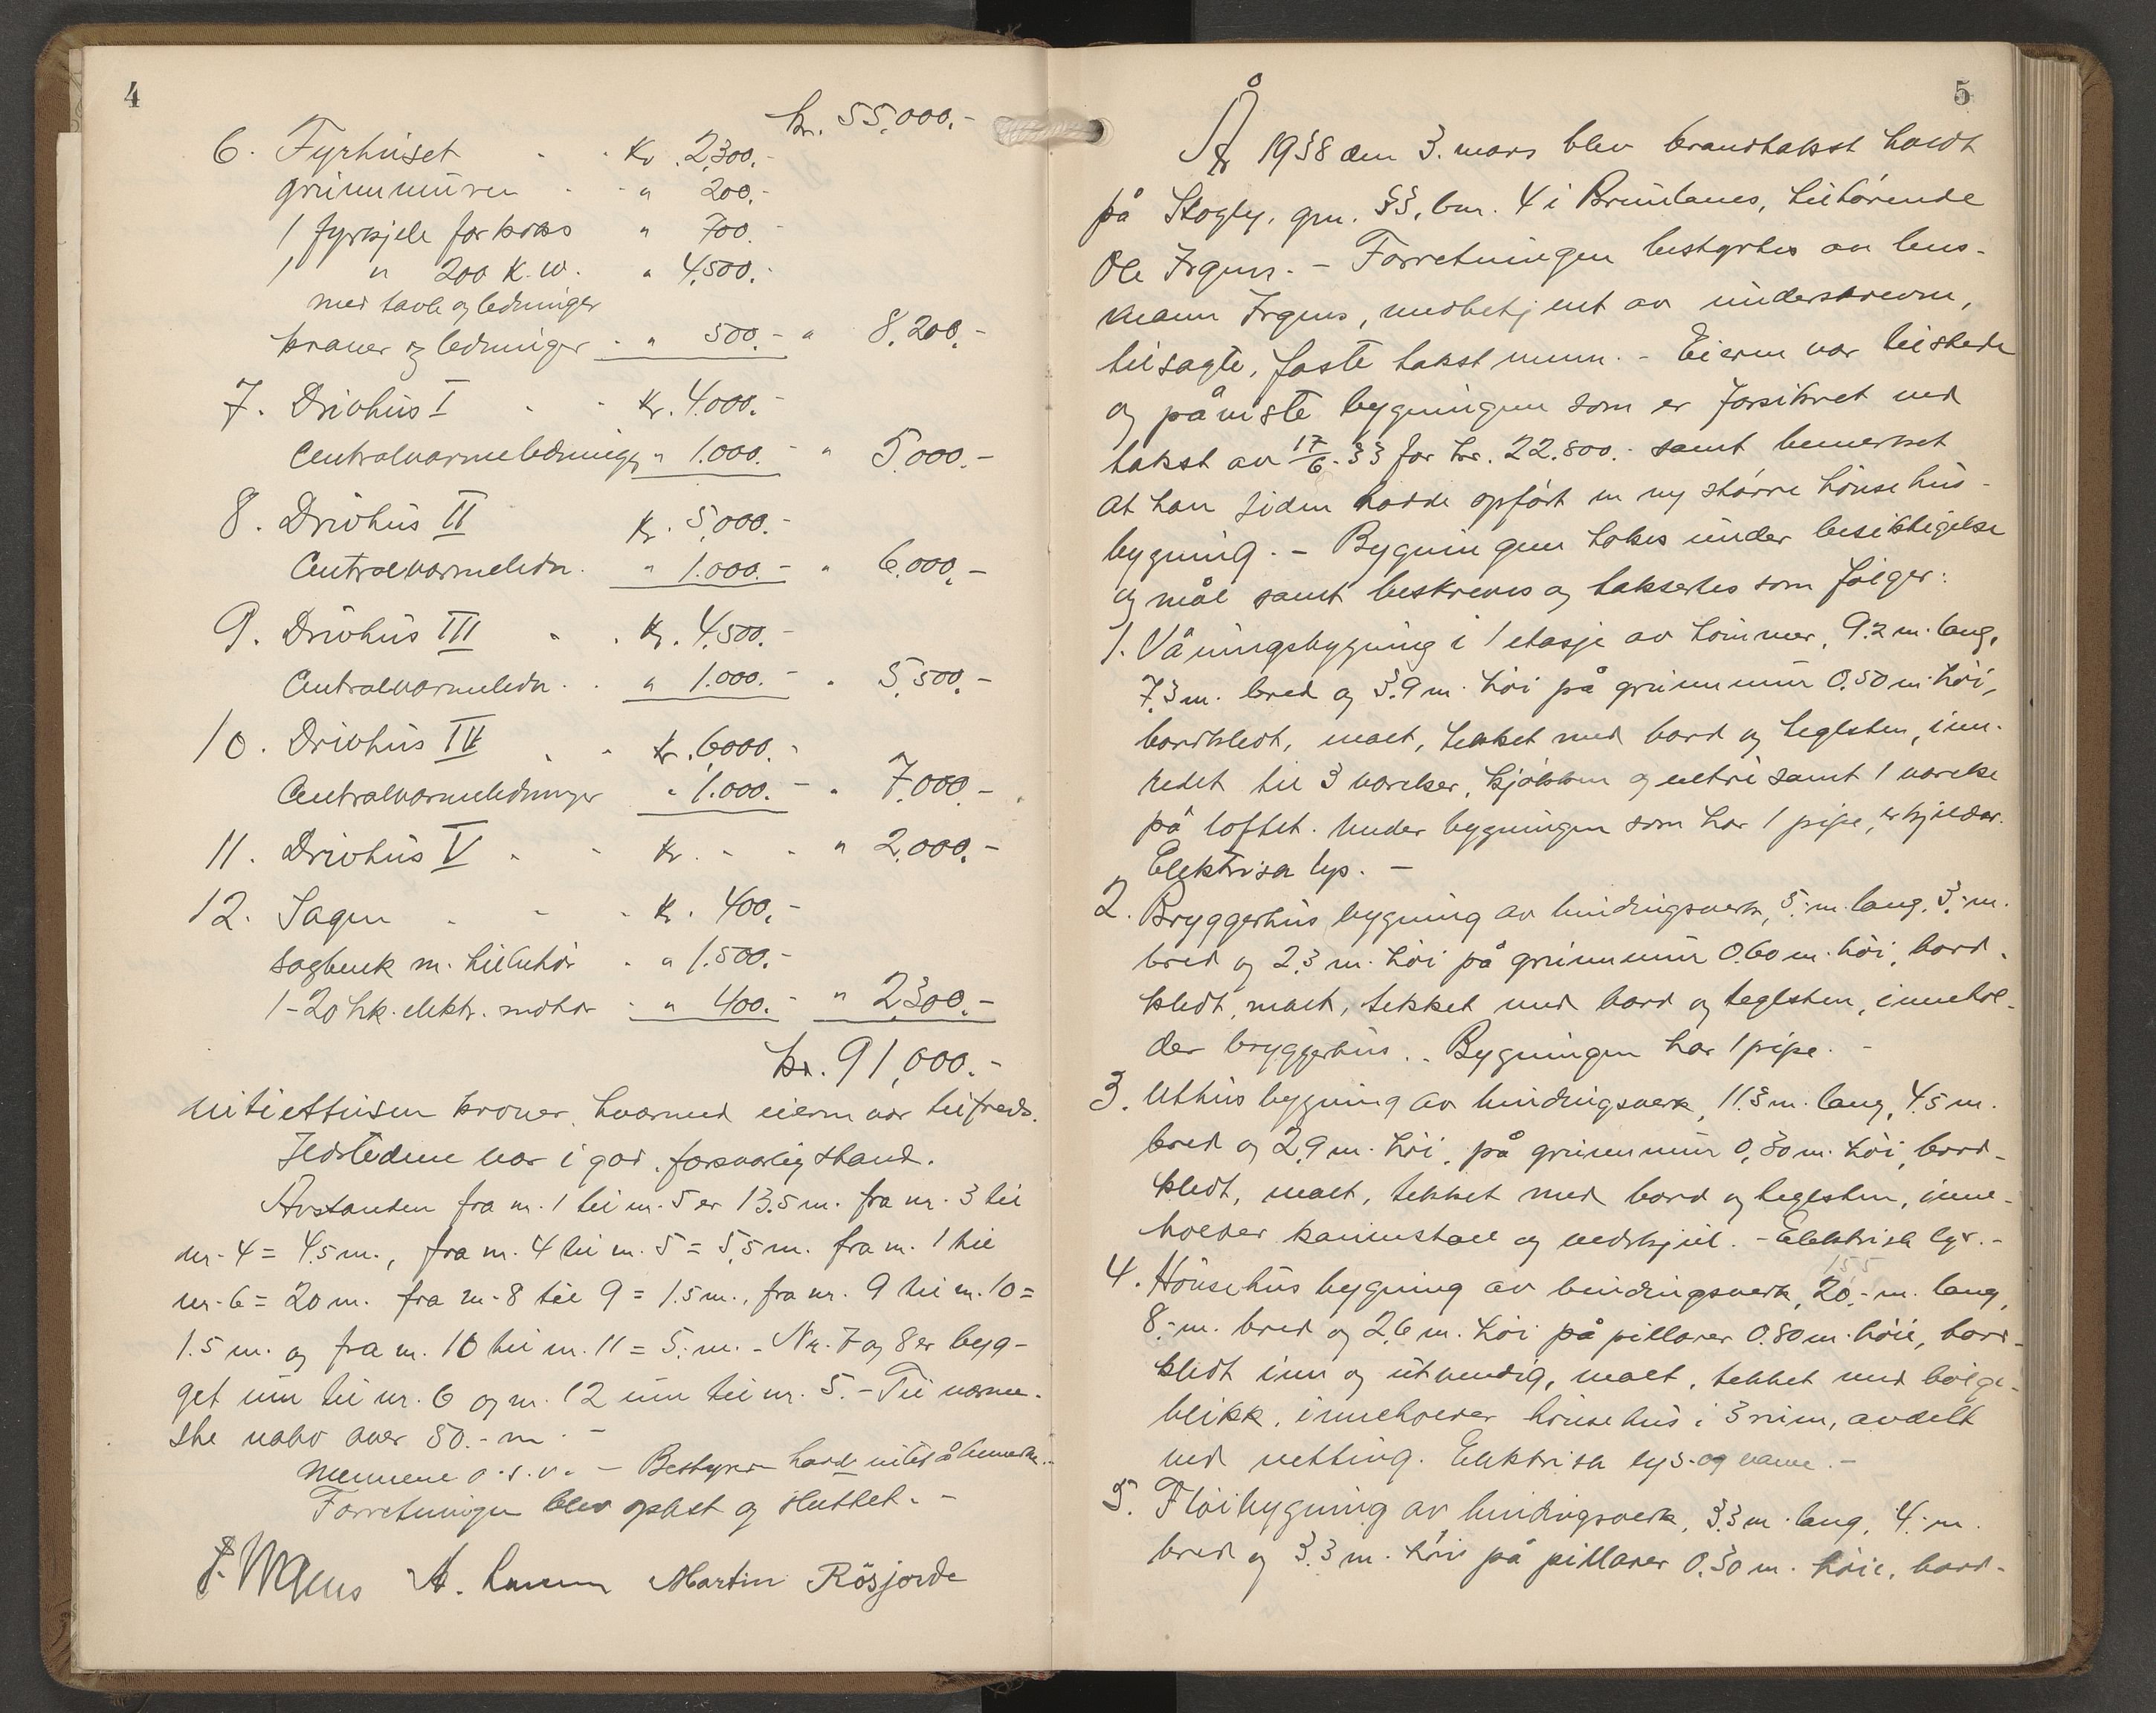 4
kr. 55.000.-
6. Fyrhuset - - Kr. 2.300.-
grunnmuren - - " 200.-
1 fyrkjele for koks " 700.-
1 " 200 K.W. " 4.500.-
med tavle og ledninger
kraner og ledninger - " 500.- " 8.200.-
7. Drivhus I - - Kr. 4.000.-
Centralvarmeledninger " 1.000.- " 5.000.-
8. Drivhus II Kr. 5.000.-
Centralvarmeledn. " 1.000.- " 6.000.-
9. Drivhus III - - Kr. 4.500.-
Centralvarmeledn. - " 1.000.- " 5.500.-
10. Drivhus IV - - Kr. 6000.-
Centralvarmeledninger " 1.000.- " 7.000.-
11. Drivhus V - - Kr. - - " 2.000.-
12. Sagen - - - Kr. 400.-
sagbenk m. tilbehör - " 1.500.-
1-20 hk. elektr. motor - " 400.- " 2.300.-
kr. 91.000.-
nitiettusen kroner, hvormed eieren var tilfreds.
Ildstedene var i god, forsvarlig stand.
Avstanden fra nr. 1 til nr. 5 er 13.5 m. fra nr. 3 til
nr. 4 = 4.5 m., fra nr. 4 til nr. 5 = 5.5 m. fra nr. 1 til
nr. 6 = 20 m. fra nr. 8 til 9 = 1.5 m., fra nr. 9 til nr. 10 =
1.5 m. og fra nr. 10 til nr. 11 = 5.- m. - Nr. 7 og 8 er byg-
get inn til nr. 6 og nr. 12 inn til nr. 5. - Til nærme-
ste nabo over 50.- m. -
Mennene o.s.v. - Bestyrer hadde intet å bemerke.-
Forretningen blev oplest og sluttet. -
A. Martin Rösjorde
5
År 1938 den 3. mars blev brandtakst holdt
på Skogly, gnr. 33, bnr. 4 i Brunlanes, tilhørende
Ole Irgens. - Forretningen bestyrtes av lens-
mann Irgens, medbetjent av underskrevne,
tilsagte, faste takstmenn. - Eieren var tilstede
og påviste bygningene som er forsikret ved
takst av 17/6-33 for kr. 22.800.- samt bemerket
at han siden hadde opført en ny større hönsehus-
bygning. - Bygningene tokes under besiktigelse
og mål samt beskreves og takseertes som følger:
1. Våningsbygning i 1 etasje av tömmer, 9.2 m. lang,
7.3 m. bred og 3.9 m. höi på grunnmur 0.50 m. höi,
bordkledt, malt, tekket med bord og teglsten, inn-
redet til 3 værelser, kjøkken og entré samt 1 værelse
på loftet. Under bygningen som har 1 pipe, er kjelder.
Elektrisk lys. -
2. Bryggerhusbygning av bindingsverk, 5.- m. lang, 3.- m.
bred og 2.3 m. höi på grunnmur 0.60 m. höi, bord-
kledt, malt, tekket med bord og teglsten, innehol-
der bryggerhus. - Bygningen har 1 pipe. -
3. Uthusbygning av bindingsverk, 11.3 m. lang, 4.5 m.
bred og 2.9 m. höi, på grunnmur 0.30 m. höi, bord-
kledt, malt, tekket med bord og teglsten, inne-
holder kaninstall og vedskjul. - Elektrisk lys. -
155
4. Hönsehusbygning av bindingsverk, 20.- m. lang,
8.- m. bred og 2.6 m. höi på pillarer 0.80 m. höie, bord-
kledt inn og utvendig, malt, tekket med bölge-
blikk, inneholder hönsehus i 3 rum, avdelt
med netting. Elektrisk lys og vann. -
5. Flöibygning av bindingsverk, 3.3 m. lang, 4.- m.
bred og 3.3 m. höi på pillarer 0.30 m. höie, bord-